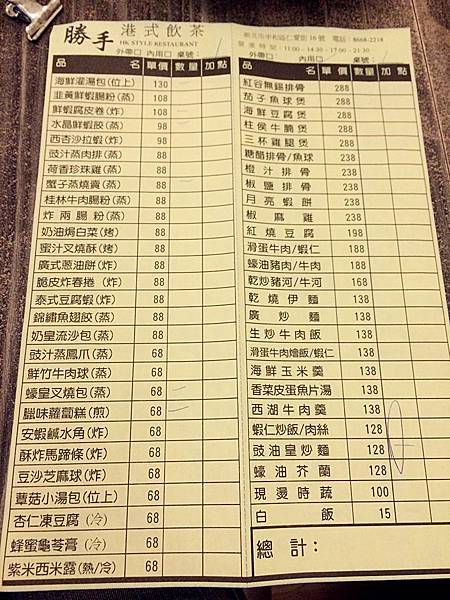 勝手 港式飲茶
HK STYLE RESTAURANT
外帶口 內用口 桌號:
品 名 單價 數量 加點
海鮮灌湯包(位上) 130
韭黃鮮蝦腸粉(蒸) 108
鮮蝦腐皮卷(炸) 108
水晶鮮蝦餃(蒸) 98
西杏沙拉蝦(炸) 98
豉汁蒸肉排(蒸) 88
荷香珍珠雞(蒸) 88
蟹子蒸燒賣(蒸) 88
桂林牛肉腸粉(蒸) 88
炸兩腸粉(蒸) 88
奶油焗白菜(烤) 88
蜜汁叉燒酥(烤) 88
廣式蔥油餅(炸) 88
脆皮炸春捲(炸) 88
泰式豆腐蝦(炸) 88
錦繡魚翅餃(蒸) 88
奶皇流沙包(蒸) 88
豉汁蒸鳳爪(蒸) 68
鮮竹牛肉球(蒸) 68
蠔皇叉燒包(蒸) 68
臘味蘿蔔糕(煎) 68
安蝦鹹水角(炸) 68
酥炸馬蹄條(炸) 68
豆沙芝麻球(炸) 68
蕈菇小湯包(位上) 68
杏仁凍豆腐(冷) 68
蜂蜜龜苓膏(冷) 68
紫米西米露(熱/冷) 68
新北市永和區仁愛路16號 電話:8668-2218
營業時間:11:00-14:30、17:00-21:30
外帶口 內用口 桌號:
品 名 單價 數量 加點
紅谷無錫排骨 288
茄子魚球煲 288
海鮮豆腐煲 288
柱侯牛腩煲 288
三杯雞腿煲 288
糖醋排骨/魚球 238
橙汁排骨 238
椒鹽排骨 238
月亮蝦餅 238
椒麻雞 238
紅燒豆腐 198
滑蛋牛肉/蝦仁 188
蠔油豬肉/牛肉 188
乾炒豬河/牛河 168
乾燒伊麵 138
廣炒麵 138
生炒牛肉飯 138
滑蛋牛肉燴飯/蝦仁 138
海鮮玉米羹 138
香菜皮蛋魚片湯 138
西湖牛肉羹 138
蝦仁炒飯/肉絲 128
豉油皇炒麵 128
蠔油芥蘭 128
現燙時蔬 100
白飯 15
總計: